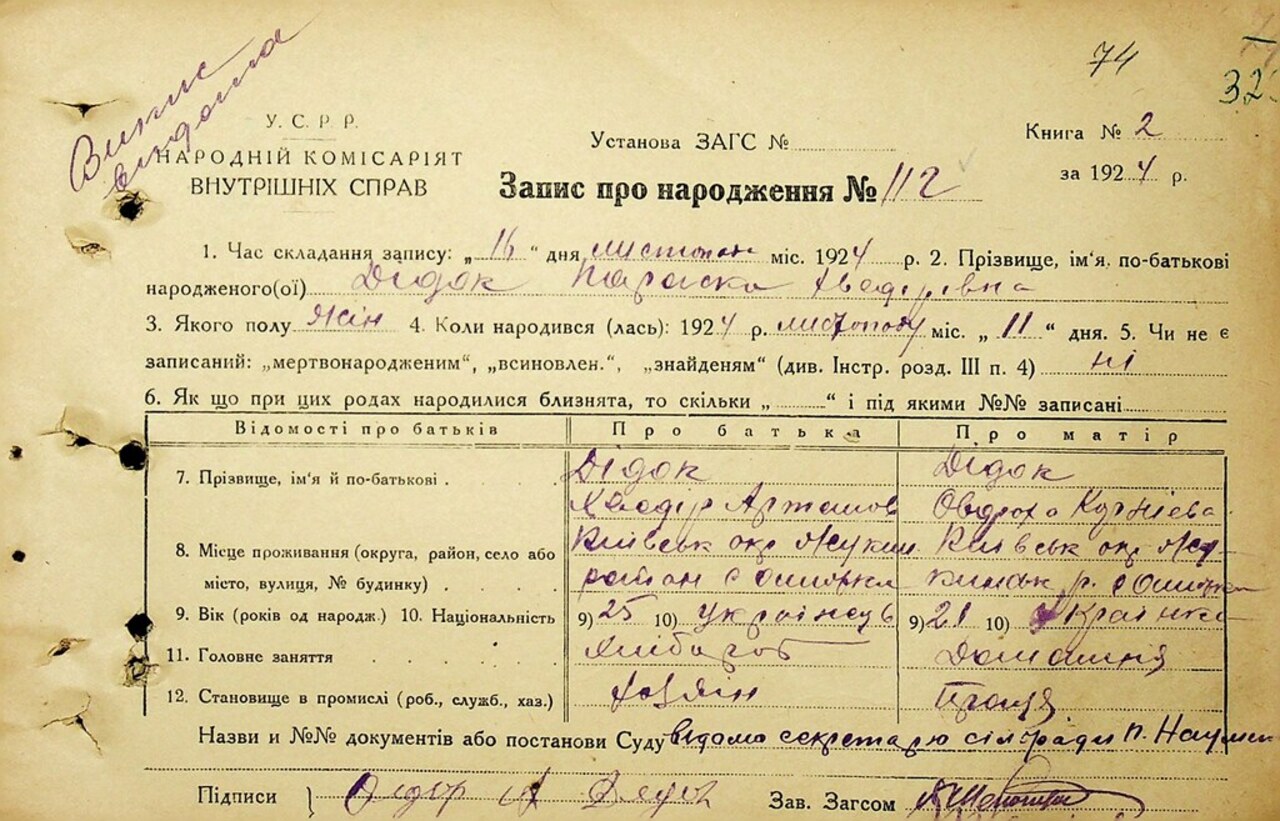 Випис
видота
74
32
У. С. Р. Р.
НАРОДНІЙ КОМІСАРІЯТ
ВНУТРІШНІХ СПРАВ
Установа ЗАГС №
Книга № 2
за 1924 р.
Запис про народження № 112
1. Час складання запису: „16“ дня листопада міс. 1924 р. 2. Прізвище, ім'я, по-батькові
народженого(ої) Дідок Параска Хведірівна
3. Якого полу жін 4. Коли народився (лась): 1924 р. листопаду міс. „11“ дня. 5. Чи не є
записаний: „мертвонародженим“, „всиновлен.“, „знайденям“ (див. Інстр. розд. III п. 4) ні
6. Як що при цих родах народилися близнята, то скільки „ “ і під якими №№ записані
Відомості про батьків Про батька Про матір
7. Прізвище, ім'я й по-батькові Дідок Дідок
Хведір Артемов Овдоха Корнієва
8. Місце проживання (округа, район, село або Київськ окр Жукин Київськ окр Жу-
місто, вулиця, № будинку) район с Ошитки кинськ р. с Ошитки
9. Вік (років од народж.) 10. Національність 9) 25 10) українець 9) 21 10) Українка
11. Головне заняття Хлібороб Домашня
12. Становище в промислі (роб., служб., хаз.) хазяін Праця
Назви и №№ документів або постанови Суду відомо секретарю сільради П. Наумен
Підписи Федор А Дедок Зав. Загсом